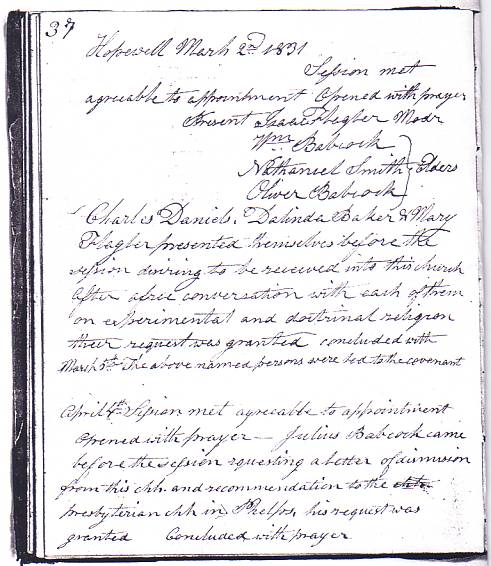 37
Hopewell Marh 2nd 1831
Session met
agreeable to appointment Opened with prayer
Present Isaac Flagler Modr
Wm Babcock
Nathaniel Smith } Elders
Oliver Babcock
Charles Daniels, Dalinda Baker & Mary
Flagler presented themselves before the
session desiring to be received into this church
After a free conversation with each of them
on experimental and doctrinal religion
their request was granted concluded with
March 5th The above named persons were led to the covenant
April 4th Session met agreeable to appointment
Opened with prayer — Julius Babcock came
before the session requesting a letter of dismission
from this chh. and recommendation to the
presbyterian chh in Phelps, his request was
granted Concluded with prayer